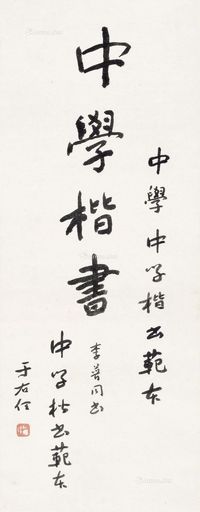 中學 中学楷书範本
中學楷書
李普同书
中学楷书範本
于右任